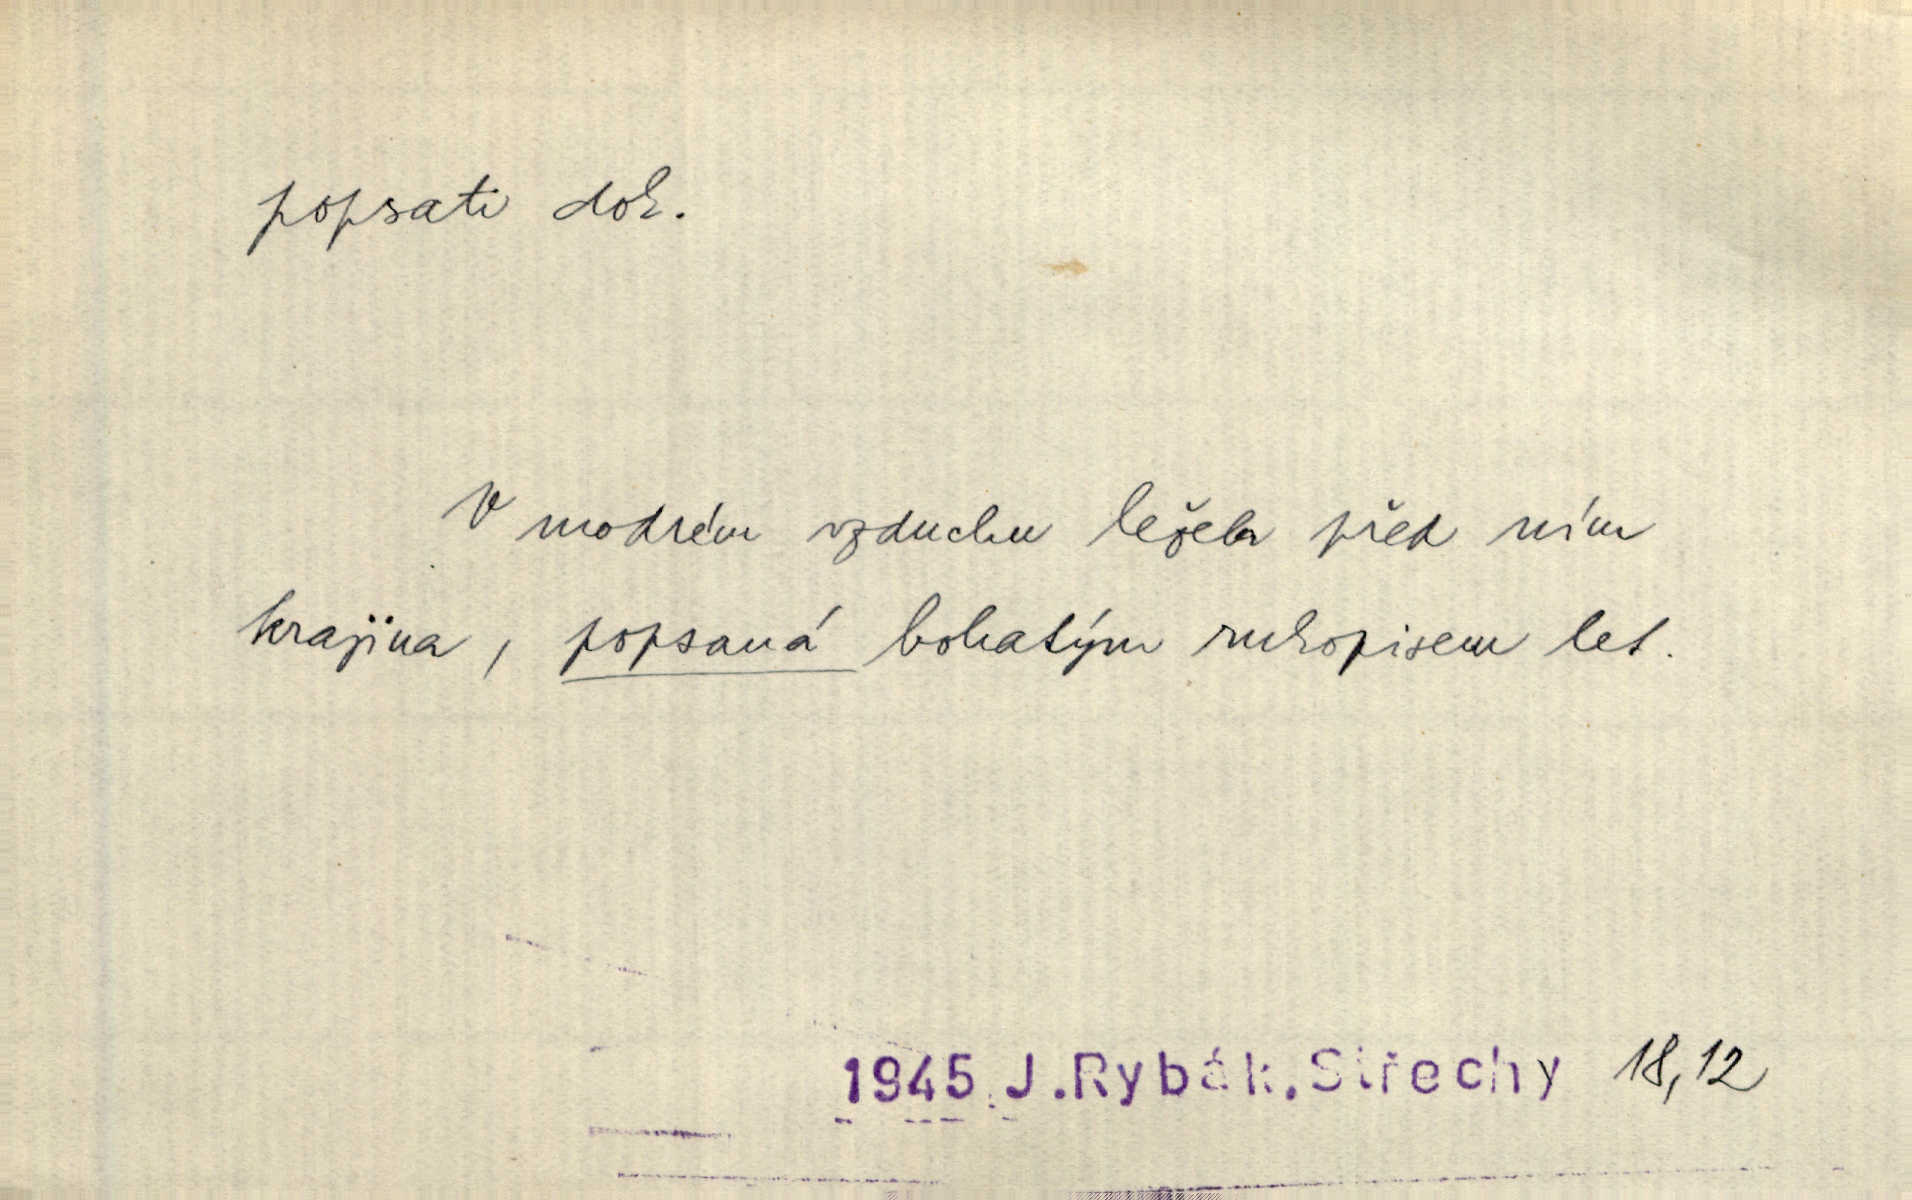 popsati dok.
V modrém vzduchu ležela před ním
krajina, popsaná bohatým rukopisem let.
1945 J.Rybák.Střechy 18,12